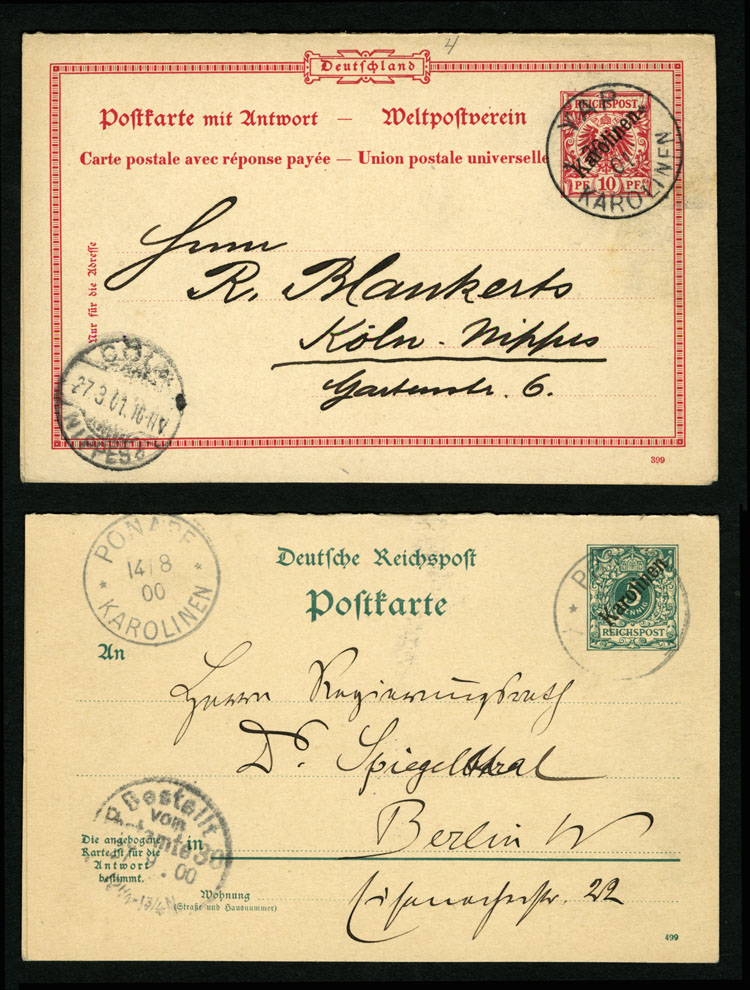 4
Deutschland
Postkarte mit Antwort — Weltpostverein
Carte postale avec réponse payée — Union postale universelle
REICHSPOST
Karolinen
PF 10 PF
YAP
01
KAROLINEN
Nur für die Adresse
Herrn
R. Blankerts
Köln-Nippes
Gartenstr. 6.
27.3.01.
NIPPES
399
PONAPE
14/8
00
KAROLINEN
Deutsche Reichspost
Postkarte
Karolinen
REICHSPOST
An
Herrn Regierungsrath
Dr. Spiegelthal
in Berlin W
Eisenacherstr. 22
Bestellt
vom
Postamte 30
00
Die angebogene
Karte ist für die
Antwort
bestimmt.
Wohnung
(Straße und Hausnummer)
499